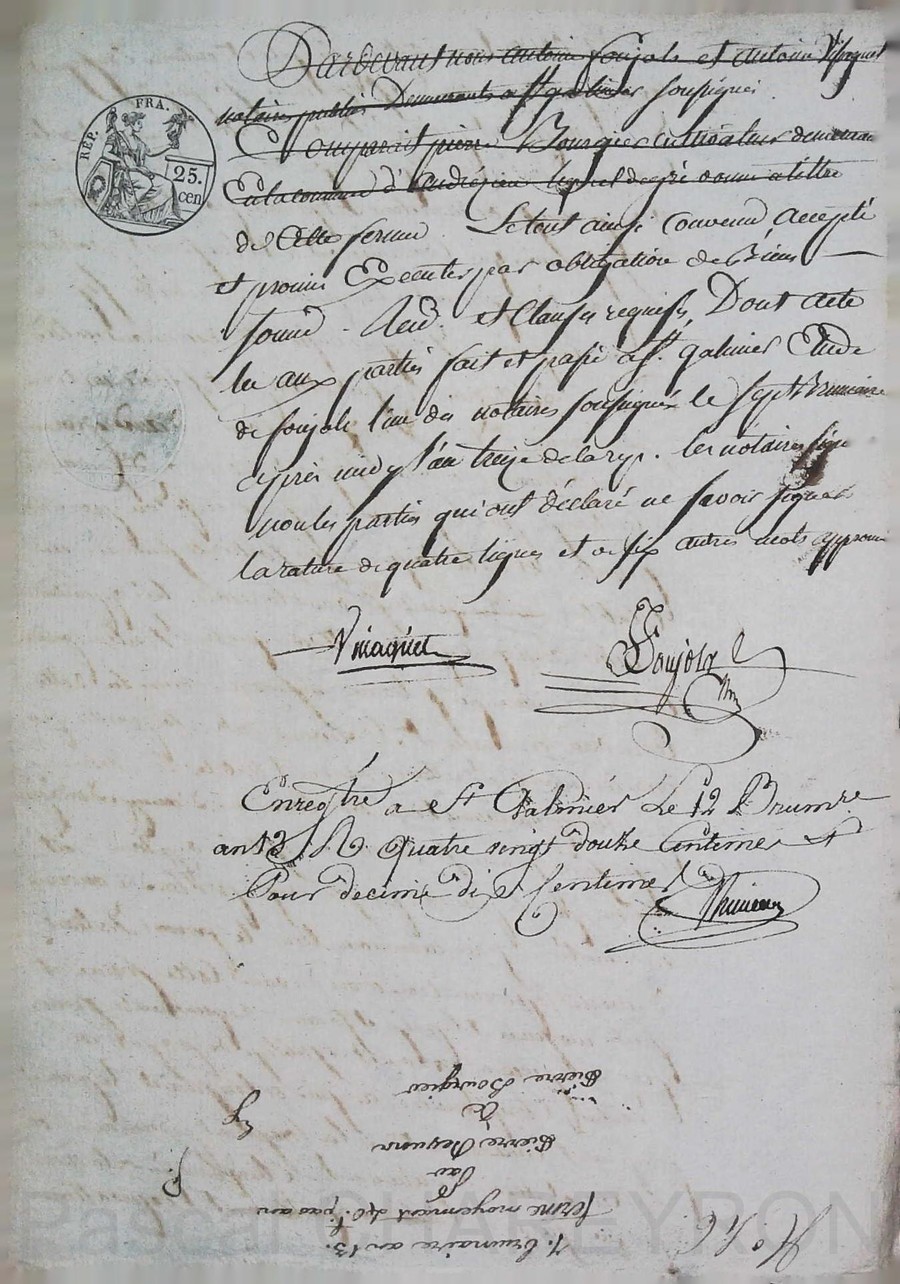 Pardevant nous antoine foujols et antoine Vinagnet
notaires publics Demeurants a St galmier soussignés
Comparait pierre Bourgier cultivateur demeurant
En la commune d'andrezieu lequel de gré donne a titre
de Cette ferme. Le tout ainsi Convenu accepté
et promis Executer par obligation de Biens
soumis. Ren. et Clauses requises, Dont acte
lu aux parties fait et passé a St. galmier Etude
de foujols l'un des notaires soussignés le sept Brumaire
après midy l'an treize de la rep. les notaires signé
non les parties qui ont déclaré ne savoir signer
la rature de quatre lignes et de six autres mots approuvé
Vinagnet
Foujols
Enregtré a St Galmier Le 12 Brumre
an 13 R. quatre vingt douze Centimes et
Pour decime dix Centimes
REP. FRA.
25.
cen
7. brumaire an 13.
ferme moyennant
par
pierre
a
pierre Bourgier
Pascal CLAREYRON